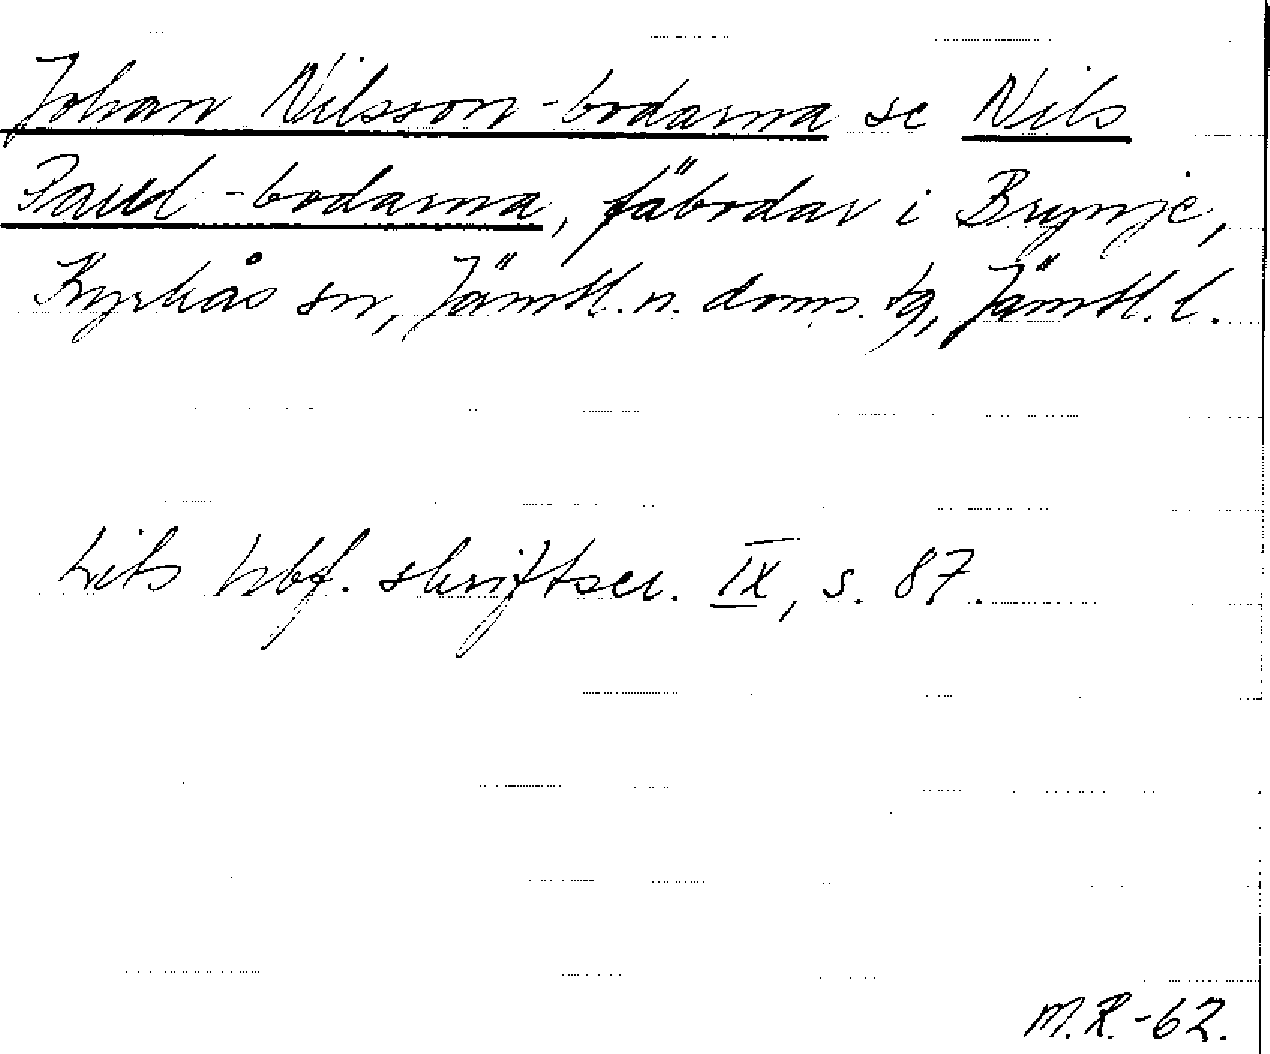 Johan Nilsson-bodarna se Nils
Paul-bodarna, fäbodar i Brynje,
Kyrkås sn, Jämtl. n. doms. tg, Jämtl. l.
Lits hbf. skriftser. IX, s. 87.
M.R.-62.